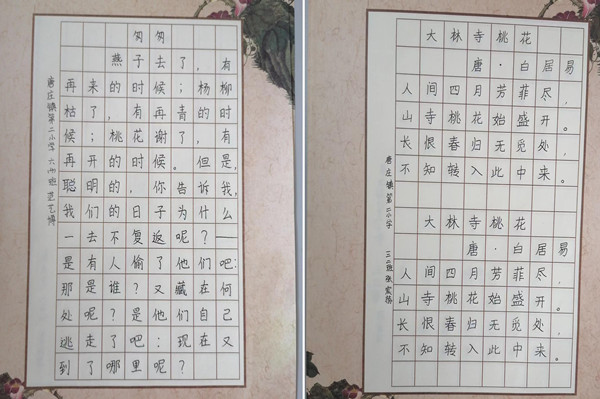 匆匆
燕子去了，有
再来的时候；杨柳
枯了，有再青的时
候；桃花谢了，有
再开的时候。但是，
聪明的，你告诉我，
我们的日子为什么
一去不复返呢？——
是有人偷了他们吧：
那是谁？又藏在何
处呢？是他们自己
逃走了吧：现在又
到了哪里呢？
唐庄镇第二小学
大林寺桃花
唐·白居易
人间四月芳菲尽，
山寺桃花始盛开。
长恨春归无觅处，
不知转入此中来。
大林寺桃花
唐·白居易
人间四月芳菲尽，
山寺桃花始盛开。
长恨春归无觅处，
不知转入此中来。
唐庄镇第二小学